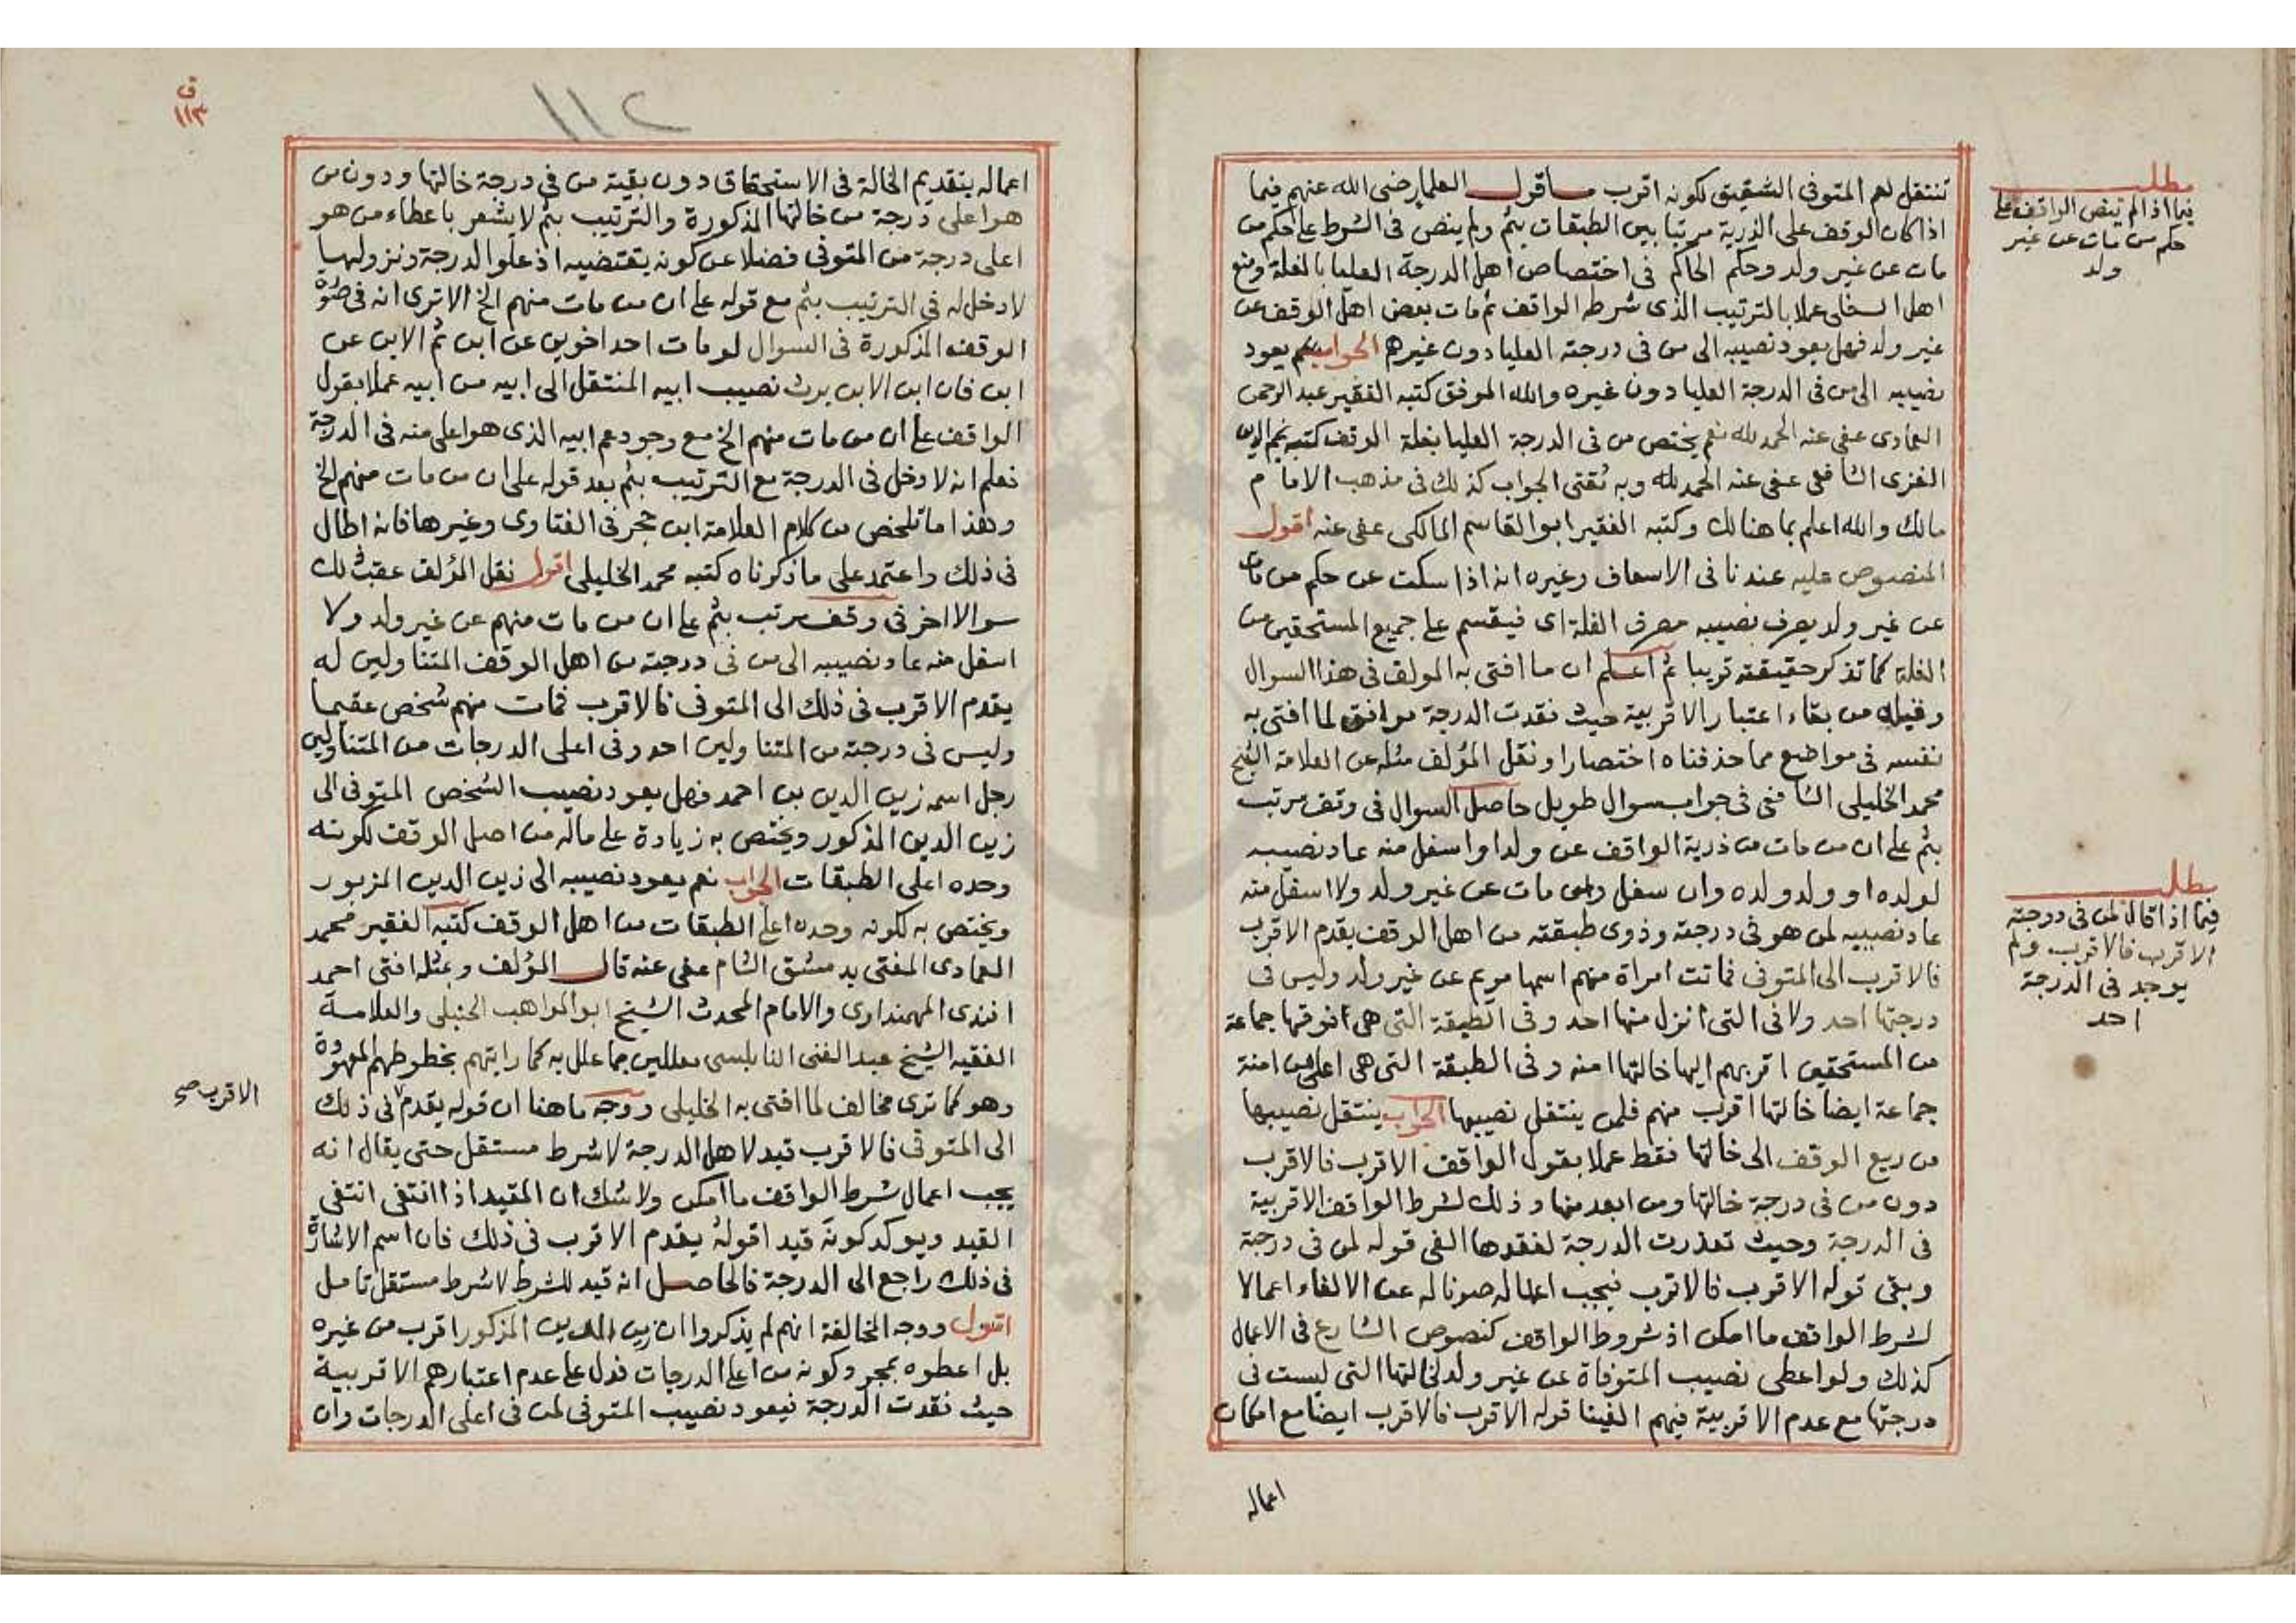 تنتقل لعم المتوفى الشقيق لكونه اقرب ما قول العلما رضى الله عنهم فيما
اذا كان الوقف على الذرية مرتبا بين الطبقات بثم ولم ينص فى الشرط على حكم من
مات عن غير ولد وحكم الحاكم فى اختصاص اهل الدرجة العليا بالغلة ومنع
اهل السفلى عملا بالترتيب الذى شرطه الواقف ثم مات بعض اهل الوقف عن
غير ولد فهل يعود نصيبه الى من فى درجته العليا دون غيرهم الجواب نعم يعود
نصيبه الى من فى الدرجة العليا دون غيره والله الموفق كتبه الفقير عبد الرحمن
العمادى عفى عنه الحمد لله نعم يختص من فى الدرجة العليا بغلة الوقف كتبه نجم الدين
الغزى الشافعى عفى عنه الحمد لله وبه نفتى الجواب كذلك فى مذهب الامام
مالك والله اعلم بما هنالك وكتبه الفقير ابو القاسم المالكى عفى عنه اقول
المنصوص عليه عندنا فى الاسعاف وغيره انه اذا سكت عن حكم من مات
عن غير ولد يصرف نصيبه مصرف الغلة اى فيقسم على جميع المستحقين من
الغلة كما تذكر حقيقته قريبا ثم اعلم ان ما افتى به المولف فى هذا السوال
وقبله من بقاء اعتبار الاقربية حيث فقدت الدرجة موافق لما افتى به
نفسه فى مواضع مما حذفناه اختصارا ونقل المؤلف مثله عن العلامة الشيخ
محمد الخليلى الشافعى فى جواب سوال طويل حاصل السوال فى وقف مرتب
بثم على ان من مات من ذرية الواقف عن ولد او اسفل منه عاد نصيبه
لولده او ولد ولده وان سفل ومن مات عن غير ولد ولا اسفل منه
عاد نصيبه لمن هو فى درجته وذوى طبقته من اهل الوقف يقدم الاقرب
فالاقرب الى المتوفى فماتت امراة منهم اسمها مريم عن غير ولد وليس فى
درجتها احد ولا فى التى انزل منها احد وفى الطبقة التى هى فوقها جماعة
من المستحقين اقربهم اليها خالتها امنه وفى الطبقة التى هى اعلى من امنة
جماعة ايضا خالتها اقرب منهم فلمن ينتقل نصيبها الجواب ينتقل نصيبها
من ريع الوقف الى خالتها فقط عملا بقول الواقف الاقرب فالاقرب
دون من فى درجة خالتها ومن ابعد منها وذلك لشرط الواقف الاقربية
فى الدرجة وحيث تعذرت الدرجة لفقدها الغى قوله لمن فى درجته
وبقى قوله الاقرب فالاقرب فيجب اعماله صونا له عن الالغاء اعمالا
لشرط الواقف ما امكن اذ شروط الواقف كنصوص الشارع فى الاعمال
كذلك ولو اعطى نصيب المتوفاة عن غير ولد لخالتها التى ليست فى
درجتها مع عدم الاقربية فيهم الغينا قوله الاقرب فالاقرب ايضا مع امكان
اعماله
مطلب
فيما اذا لم ينص الواقف على
حكم من مات عن غير
ولد
مطلب
فيما اذا قال لمن فى درجته
الاقرب فالاقرب ولم
يوجد فى الدرجة
احد
ق
١١٣
١١٢
اعماله بتقديم الخالة فى الاستحقاق دون بقية من فى درجة خالتها ودون من
هو اعلى درجة من خالتها المذكورة والترتيب بثم لا يشعر باعطاء من هو
اعلى درجة من المتوفى فضلا عن كونه يقتضيه اذ علو الدرجة ونزولها
لا دخل له فى الترتيب بثم مع قوله على ان من مات منهم الخ الا ترى انه فى صورة
الوقف المذكورة فى السوال لو مات احد اخوين عن ابن ثم الابن عن
ابن فان ابن الابن يرث نصيب ابيه المنتقل الى ابيه من ابيه عملا بقول
الواقف على ان من مات منهم الخ مع وجود عم ابيه الذى هو اعلى منه فى الدرجة
فعلم انه لا دخل فى الدرجة مع الترتيب بثم بعد قوله على ان من مات منهم الخ
وهذا ما تلخص من كلام العلامة ابن حجر فى الفتاوى وغيرها فانه اطال
فى ذلك واعتمد على ما ذكرناه كتبه محمد الخليلى اقول نقل المؤلف عقب ذلك
سوالا اخر فى وقف مرتب بثم على ان من مات منهم عن غير ولد ولا
اسفل منه عاد نصيبه الى من فى درجته من اهل الوقف المتناولين له
يقدم الاقرب فى ذلك الى المتوفى فالاقرب فمات منهم شخص عقيما
وليس فى درجته من المتناولين احد وفى اعلى الدرجات من المتناولين
رجل اسمه زين الدين بن احمد فهل يعود نصيب الشخص المتوفى الى
زين الدين المذكور ويختص به زيادة على ماله من اصل الوقف لكونه
وحده اعلى الطبقات الجواب نعم يعود نصيبه الى زين الدين المزبور
ويختص به لكونه وحده اعلى الطبقات من اهل الوقف كتبه الفقير محمد
العمادى المفتى بدمشق الشام عفى عنه قال المؤلف وبمثله افتى احمد
افندى المهمندارى والامام المحدث الشيخ ابو المواهب الحنبلى والعلامة
الفقيه الشيخ عبد الغنى النابلسى معللين بما علل به كما رايتهم بخطوطهم المعهودة
وهو كما ترى مخالف لما افتى به الخليلى ووجه ما هنا ان قوله يقدم فى ذلك
الى المتوفى فالاقرب قيد لاهل الدرجة لا شرط مستقل حتى يقال انه
يجب اعمال شرط الواقف ما امكن ولا شك ان المقيد اذا انتفى انتفى
القيد ويوكد كونه قيدا قوله يقدم الاقرب فى ذلك فان اسم الاشارة
فى ذلك راجع الى الدرجة فالحاصل انه قيد للشرط لا شرط مستقل تامل
اقول ووجه المخالفة انهم لم يذكروا ان زين الدين المذكور اقرب من غيره
بل اعطوه بمجرد كونه من اعلى الدرجات فدل على عدم اعتبارهم الاقربية
حيث فقدت الدرجة فيعود نصيب المتوفى لمن فى اعلى الدرجات وان
الاقرب صح